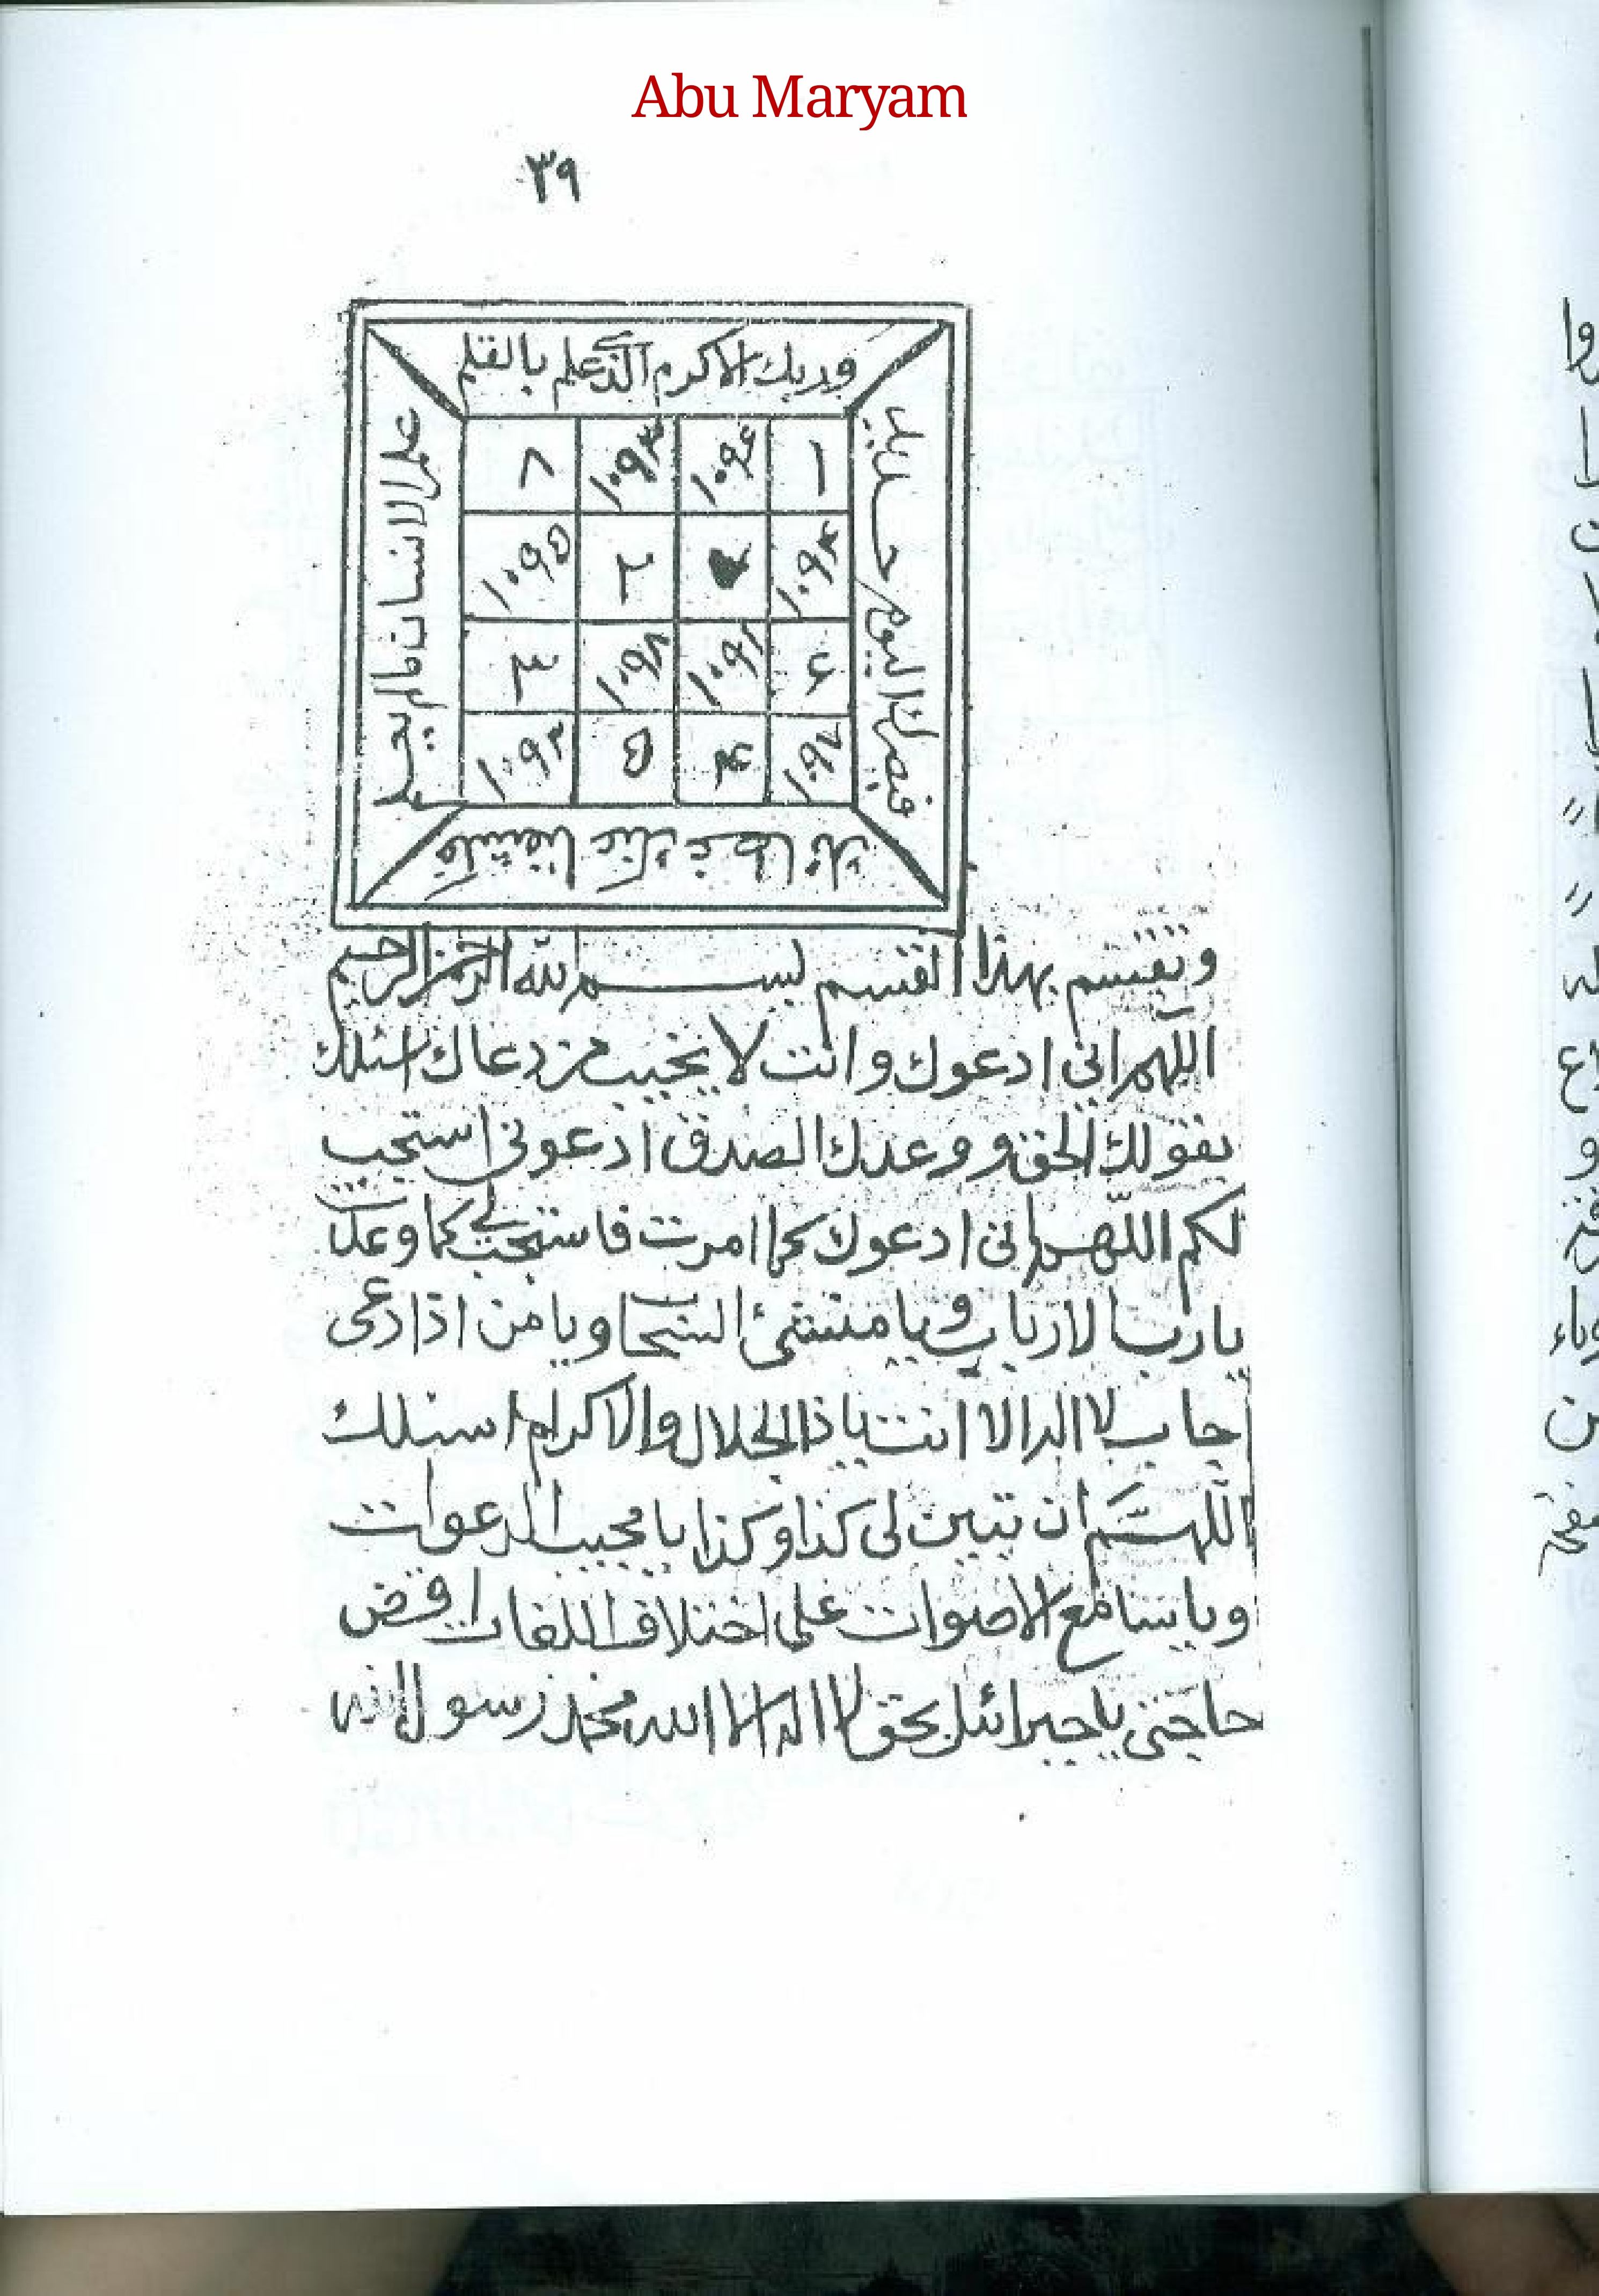 Abu Maryam
٣٩
وربك الاكرم الذي علم بالقلم
علم الانسان مالم يعلم
فبصرك اليوم حديد
فكشفنا عنك غطاءك
١ ١٠٩٤ ١٠٩٣ ٨
١٠٩٥
١٠٩٨ ١٠٩١ ٦
٥
وتقسم بهذا القسم بسم الله الرحمن الرحيم
اللهم اني ادعوك وانت لا يخيب من دعاك اسئلك
بقولك الحق ووعدك الصدق ادعوني استجب
لكم اللهم اني ادعوك كما امرت فاستجب لي كما وعدت
يا رب الارباب ويا منشئ السحاب ويا من اذا دعى
اجاب لا اله الا انت يا ذا الجلال والاكرام اسئلك
اللهم ان تبين لى كذا وكذا يا مجيب الدعوات
ويا سامع الاصوات على اختلاف اللغات اقض
حاجتى يا جبرائيل بحق لا اله الا الله محمد رسول الله